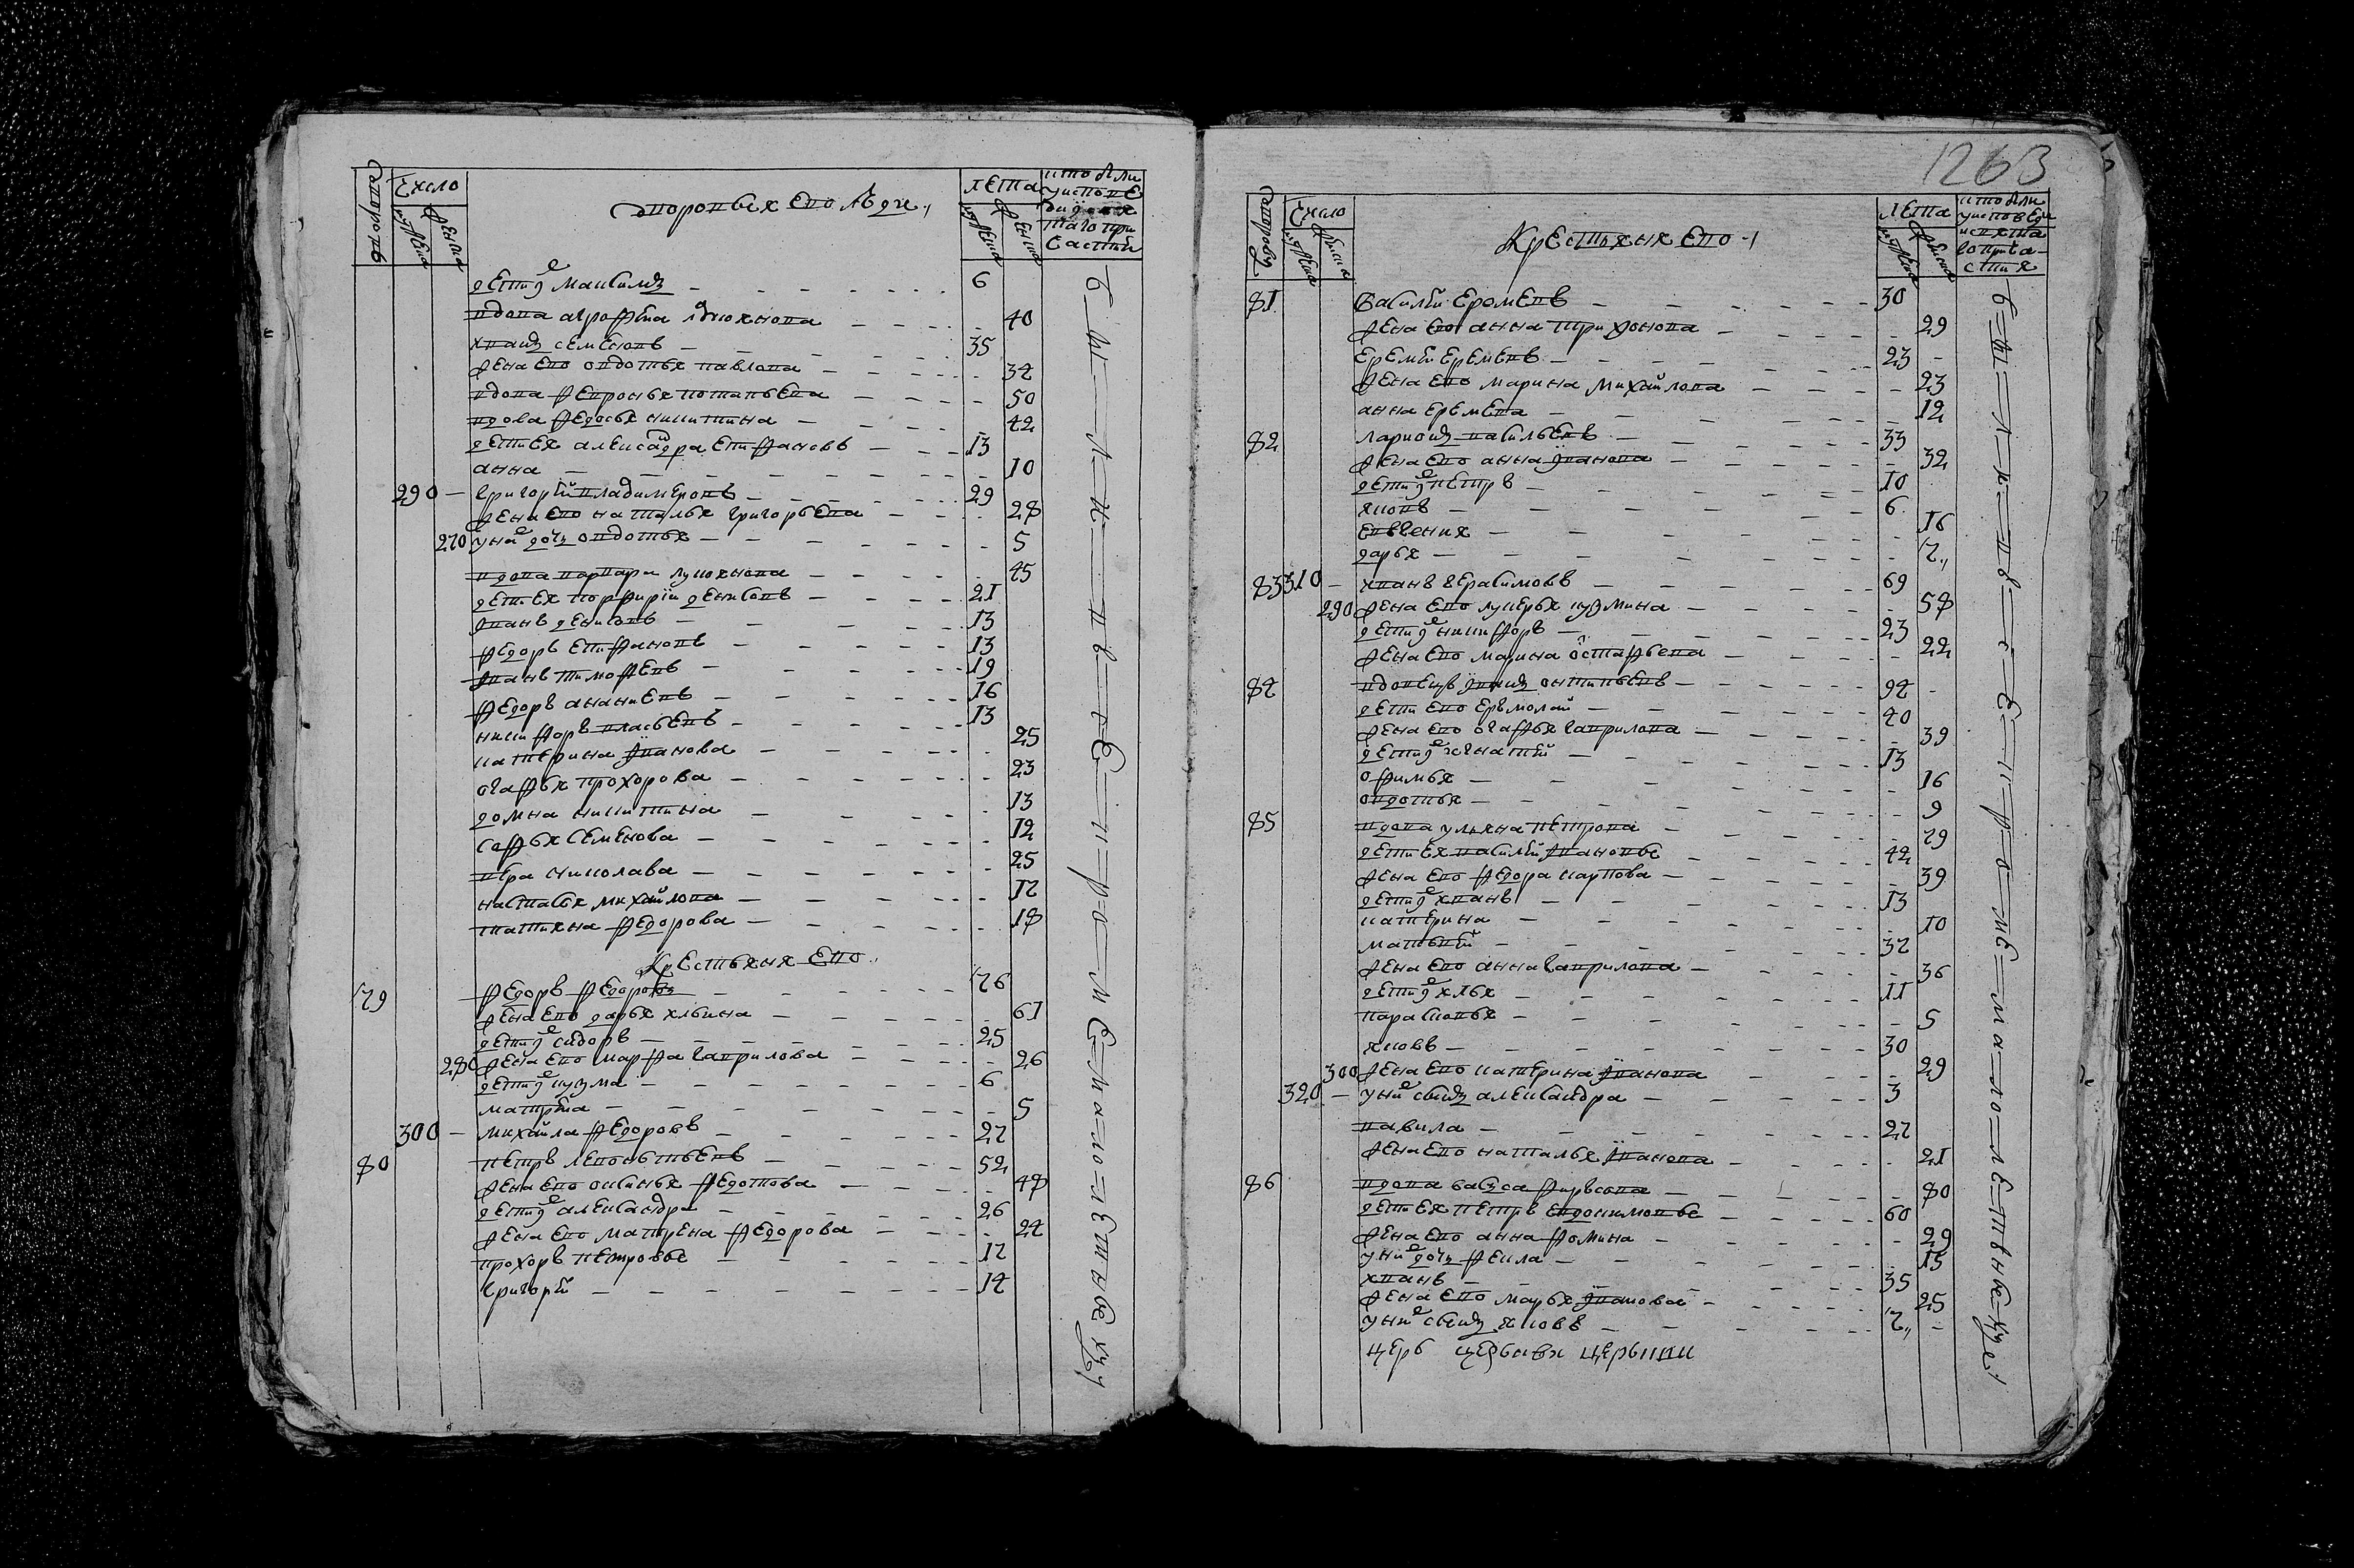 дворовъ
Число
мужеска
женска
дворовых его людей
лета
мужеска
женска
кто были
у испове
ди и свя
таго при
частия
дети е максимъ 6
вдова агрофена лукоянова 40
иванъ семеновъ 35
жена его овдотья павлова 34
вдова февронья потапьева 50
вдова федосья никитина 42
дети ея александра епифановъ 13
анна 10
290 григорей владимеровъ 29
жена его наталья григорьева 28
270 у них дочь овдотья 5
вдова варвара лукоянова 45
дети ея порфирій денисовъ 21
иванъ денисовъ 13
федоръ епифановъ 13
иванъ тимофеевъ 19
федоръ ананиевъ 16
никифоръ власьевъ 13
катерина иванова 25
огафья прохорова 23
домна никитина 13
софья семенова 12
вера николава 25
настасья михайлова 17
татияна федорова 18
Крестьяня его
79 федоръ федоровъ 76
жена его дарья ильина 61
дети е сидоръ 25
280 жена его марфа гаврилова 26
дети е кузма 6
матрена 5
300 михайла федоровъ 27
80 петръ леонтьевъ 52
жена его оксинья федотова 48
дети е александръ 26
жена его матрена федорова 24
прохоръ петровъ 17
григорей 14
были вьсе кроме малолетныхъ
1263
дворовъ
Число
мужеска
женска
Крестьяня его
лета
мужеска
женска
кто были
у исповеди
и святаго
причастия
81 василей еремеевъ 30
жена его анна трифонова 29
еремей еремеевъ 23
жена его марина михайлова 23
анна еремеева 12
82 ларионъ васильевъ 33
жена его анна иванова 32
дети е петръ 10
яковъ 6
евгения 16
дарья 7
83 310 иванъ герасимовъ 69
290 жена его лукерья кузмина 58
дети е никифоръ 23
жена его марина остафьева 22
84 вдовецъ иванъ онтипьевъ 94
дети его ермолай 40
жена его огафья гаврилова 39
дети е игнатей 13
офимья 16
овдотья 9
85 вдова ульяна петрова 79
дети ея василей ивановъ 42
жена его федора карпова 39
дети е иванъ 13
катерина 10
матвей 37
жена его анна гаврилова 36
дети е илья 11
парасковья 5
яковъ 30
300 жена его катерина иванова 29
320 у них сынъ александра 3
вавила 27
жена его наталья иванова 21
86 вдова васса фирсова 80
дети ея петръ евдокимовъ 60
жена его анна фомина 29
у них дочь фекла 15
иванъ 35
жена его марья ивановай 25
у них сынъ яковъ 7
церъ церькавя церькви
были вьсе кроме малолетьныхъ